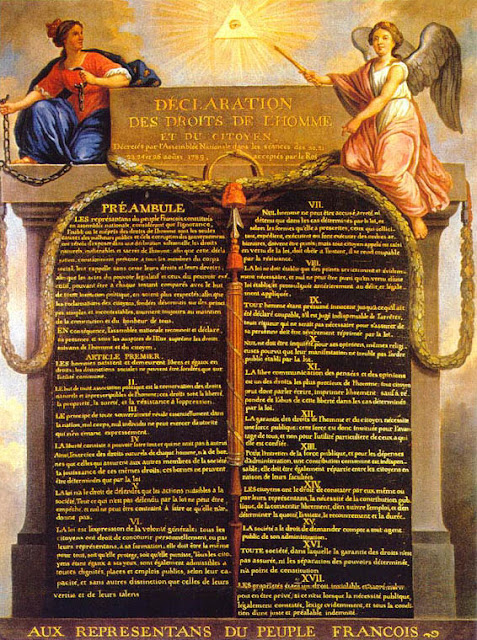 DÉCLARATION
DES DROITS DE L'HOMME
ET DU CITOYEN,
Décrétés par l'Assemblée Nationale dans les séances des 20, 21
23, 24 et 26 août 1789, acceptés par le Roi
PRÉAMBULE
LES représentans du peuple François, constitués
en assemblée nationale, considérant que l'ignorance,
l'oubli ou le mépris des droits de l'homme sont les seules
causes des malheurs publics et de la corruption des gouvernemens
ont résolu d'exposer dans une déclaration solemnelle, les droits
naturels, inaliénables et sacrés de l'homme: afin que cette décla-
ration, constamment présente à tous les membres du corps
social, leur rappelle sans cesse leurs droits et leurs devoirs;
afin que les actes du pouvoir législatif et ceux du pouvoir exé-
cutif, pouvant être à chaque instant comparés avec le but
de toute institution politique, en soient plus respectés; afin que
les réclamations des citoyens, fondées désormais sur des princi-
pes simples et incontestables, tournent toujours au maintien
de la constitution et du bonheur de tous.
EN conséquence, l'assemblée nationale reconnoit et déclare,
en présence et sous les auspices de l'Être suprême les droits
suivans de l'homme et du citoyen.
ARTICLE PREMIER.
LES hommes naissent et demeurent libres et égaux en
droits; les distinctions sociales ne peuvent être fondées que sur
l'utilité commune.
II.
LE but de toute association politique est la conservation des droits
naturels et imprescriptibles de l'homme; ces droits sont la liberté,
la propriété, la sureté, et la résistance à l'oppression.
III.
LE principe de toute souveraineté réside essentiellement dans
la nation, nul corps, nul individu ne peut exercer d'autorité
qui n'en émane expressément.
IV.
LA liberté consiste à pouvoir faire tout ce qui ne nuit pas à autrui
Ainsi, l'exercice des droits naturels de chaque homme, n'a de bor-
nes que celles qui assurent aux autres membres de la société
la jouissance de ces mêmes droits; ces bornes ne peuvent
être déterminées que par la loi
V.
LA loi n'a le droit de défendre que les actions nuisibles à la
société. Tout ce qui n'est pas défendu par la loi ne peut être
empêché, et nul ne peut être contraint à faire ce qu'elle n'or-
donne pas.
VI.
LA loi est l'expression de la volonté générale; tous les
citoyens ont droit de concourir personnellement, ou par
leurs représentans, à sa formation; elle doit être la même
pour tous, soit qu'elle protege, soit qu'elle punisse. Tous les ci-
toyens étant égaux à ses yeux, sont également admissibles à
toutes dignités, places et emplois publics, selon leur ca-
pacité, et sans autres distinction que celles de leurs
vertus et de leurs talens
VII.
NUL homme ne peut être accusé, arrêté ni
détenu que dans les cas déterminés par la loi, et
selon les formes qu'elle a prescrites, ceux qui sollici-
tent, expédient, exécutent ou font exécuter des ordres ar-
bitraires, doivent être punis; mais tout citoyen appelé ou saisi
en vertu de la loi, doit obéir à l'instant, il se rend coupable
par la résistance.
VIII.
LA loi ne doit établir que des peines strictement et évidem-
ment nécessaires, et nul ne peut être puni qu'en vertu d'une
loi établie et promulguée antérieurement au délit, et légale-
ment appliquée.
IX.
TOUT homme étant présumé innocent jusqu'à ce qu'il ait
été déclaré coupable, s'il est jugé indispensable de l'arrêter,
toute rigueur qui ne serait pas nécessaire pour s'assurer de
sa personne doit être sévèrement réprimée par la loi.
X.
NUL ne doit être inquiété pour ses opinions, mêmes religi-
euses pourvu que leur manifestation ne trouble pas l'ordre
public établi par la loi.
XI.
LA libre communication des pensées et des opinions
est un des droits les plus précieux de l'homme; tout citoyen
peut donc parler écrire, imprimer librement sauf à ré-
pondre de l'abus de cette liberté dans les cas déterminés
par la loi.
XII.
LA garantie des droits de l'homme et du citoyen nécessite
une force publique; cette force est donc instituée pour l'avan-
tage de tous, et non pour l'utilité particuliere de ceux à qui
elle est confiée.
XIII.
Pour l'entretien de la force publique, et pour les dépenses
d'administration, une contribution commune est indispen-
sable; elle doit être également répartie entre les citoyens en
raison de leurs facultées
XIV.
LES citoyens ont le droit de constater par eux même ou
par leurs représentans, la nécessité de la contribution pub-
lique, de la consentir librement, d'en suivre l'emploi, et d'en
déterminer la quotité, l'assiette, le recouvrement et la durée.
XV.
LA société a le droit de demander compte a tout agent
public de son administration.
XVI.
TOUTE société, dans laquelle la garantie des droits n'est
pas assurée, ni la séparation des pouvoirs déterminée,
n'a point de constitution
XVII.
LES propriétés étant un droit inviolable et sacré, nul ne
peut en être privé, si ce n'est lorsque la nécessité publique,
légalement constatée, l'exige évidemment, et sous la condi-
tion d'une juste et préalable indemnité.
AUX REPRESENTANS DU PEUPLE FRANCOIS